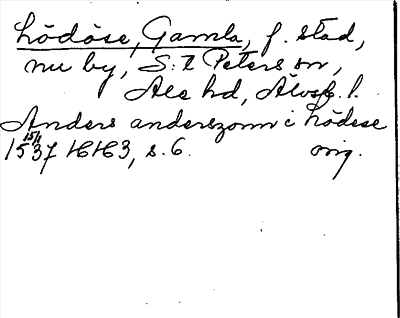 Lödöse, Gamla, f. stad,
nu by, S:t Peters sn,
Ale hd, Älvsb. l.
Anders anderszonn i Lödese
15/1 1537 HH3, s. 6. orig.